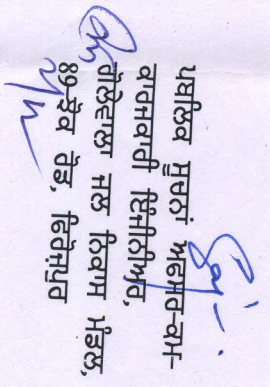 ਪਬਲਿਕ ਸੂਚਨਾਂ ਅਫਸਰ-ਕਮ-
ਕਾਰਜਕਾਰੀ ਇੰਜੀਨੀਅਰ,
ਗੋਲੇਵਾਲਾ ਜਲ ਨਿਕਾਸ ਮੰਡਲ,
89-ਕੈਂਪ ਰੋਡ, ਫਿਰੋਜ਼ਪੁਰ